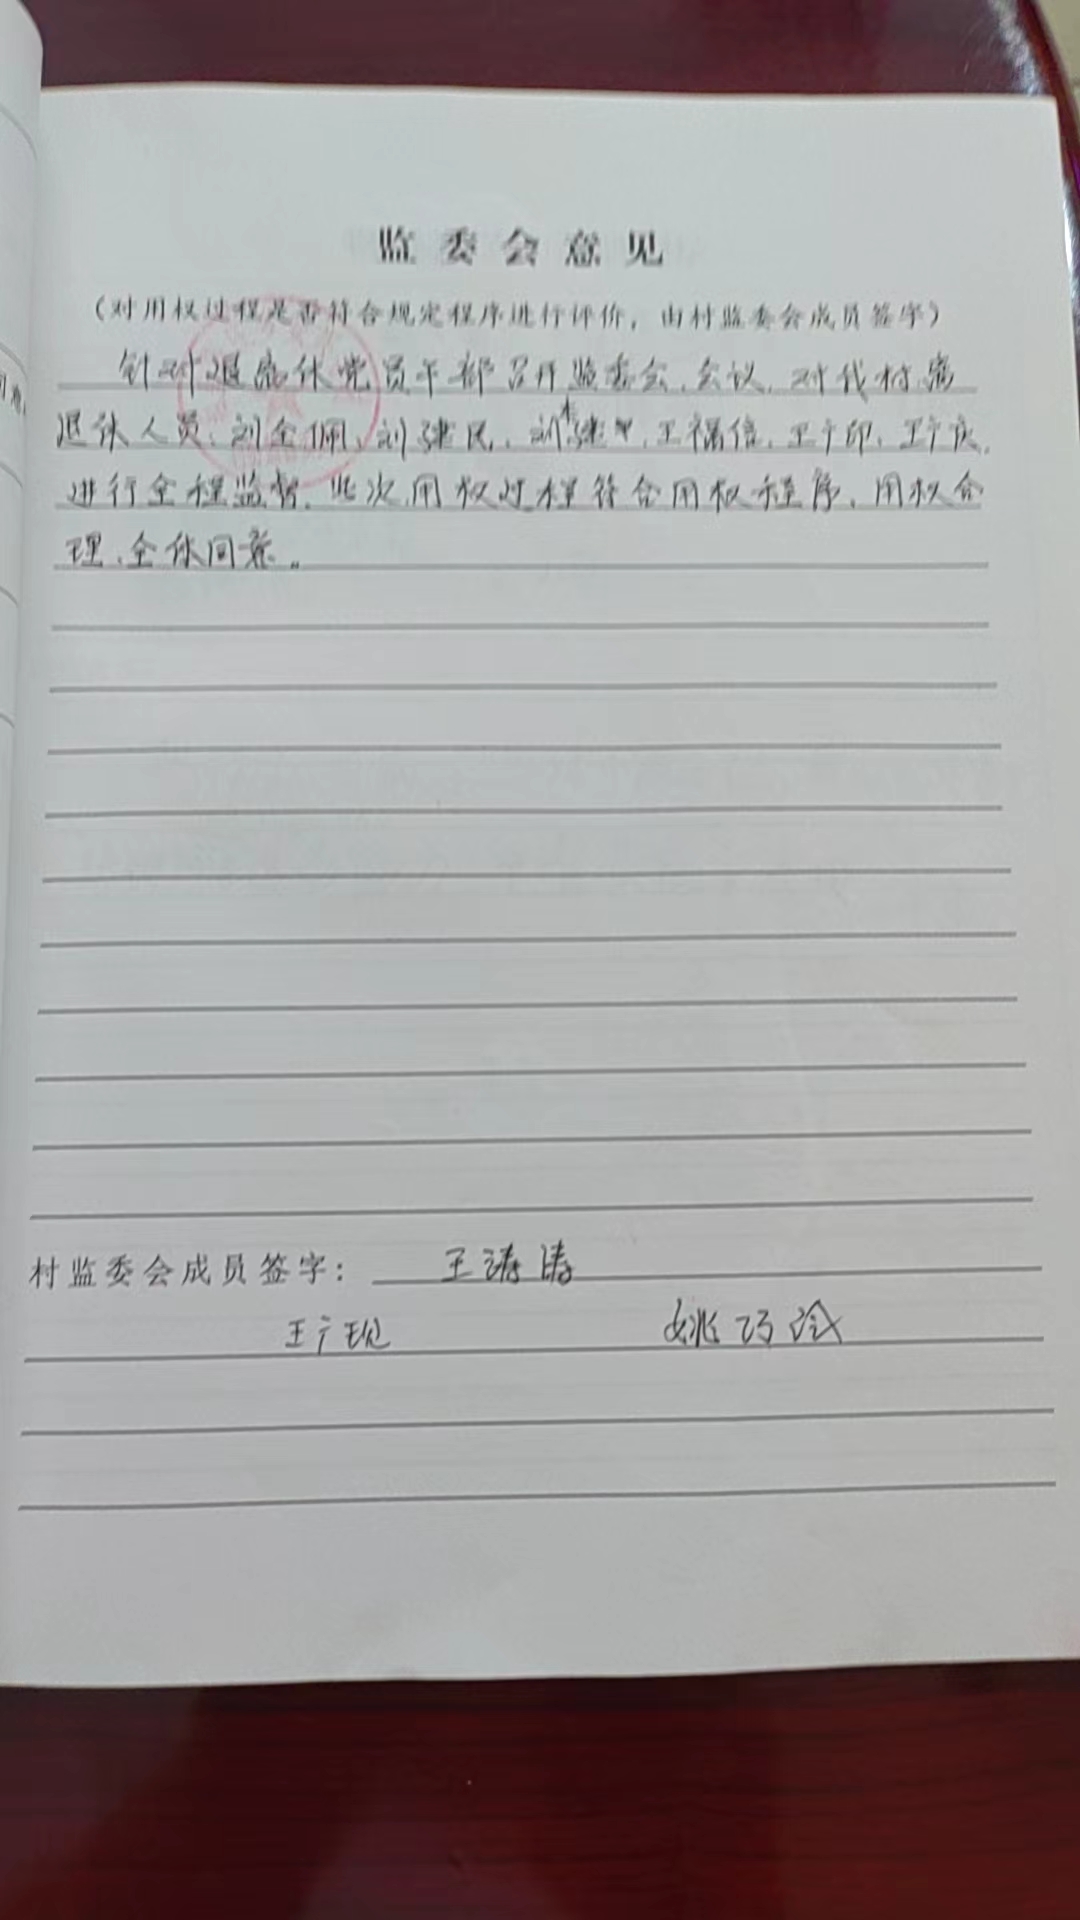 监委会意见
（对用权过程是否符合规定程序进行评价，由村监委会成员签字）
针对退离休党员干部召开监委会、会议，对我村离
退休人员、刘全佩、刘建民、刘建甲、王福信、王广印、王广庆、
进行全程监督，此次用权过程符合用权程序、用权合
理、全体同意。
村监委会成员签字： 王涛涛
王广现 姚巧玲